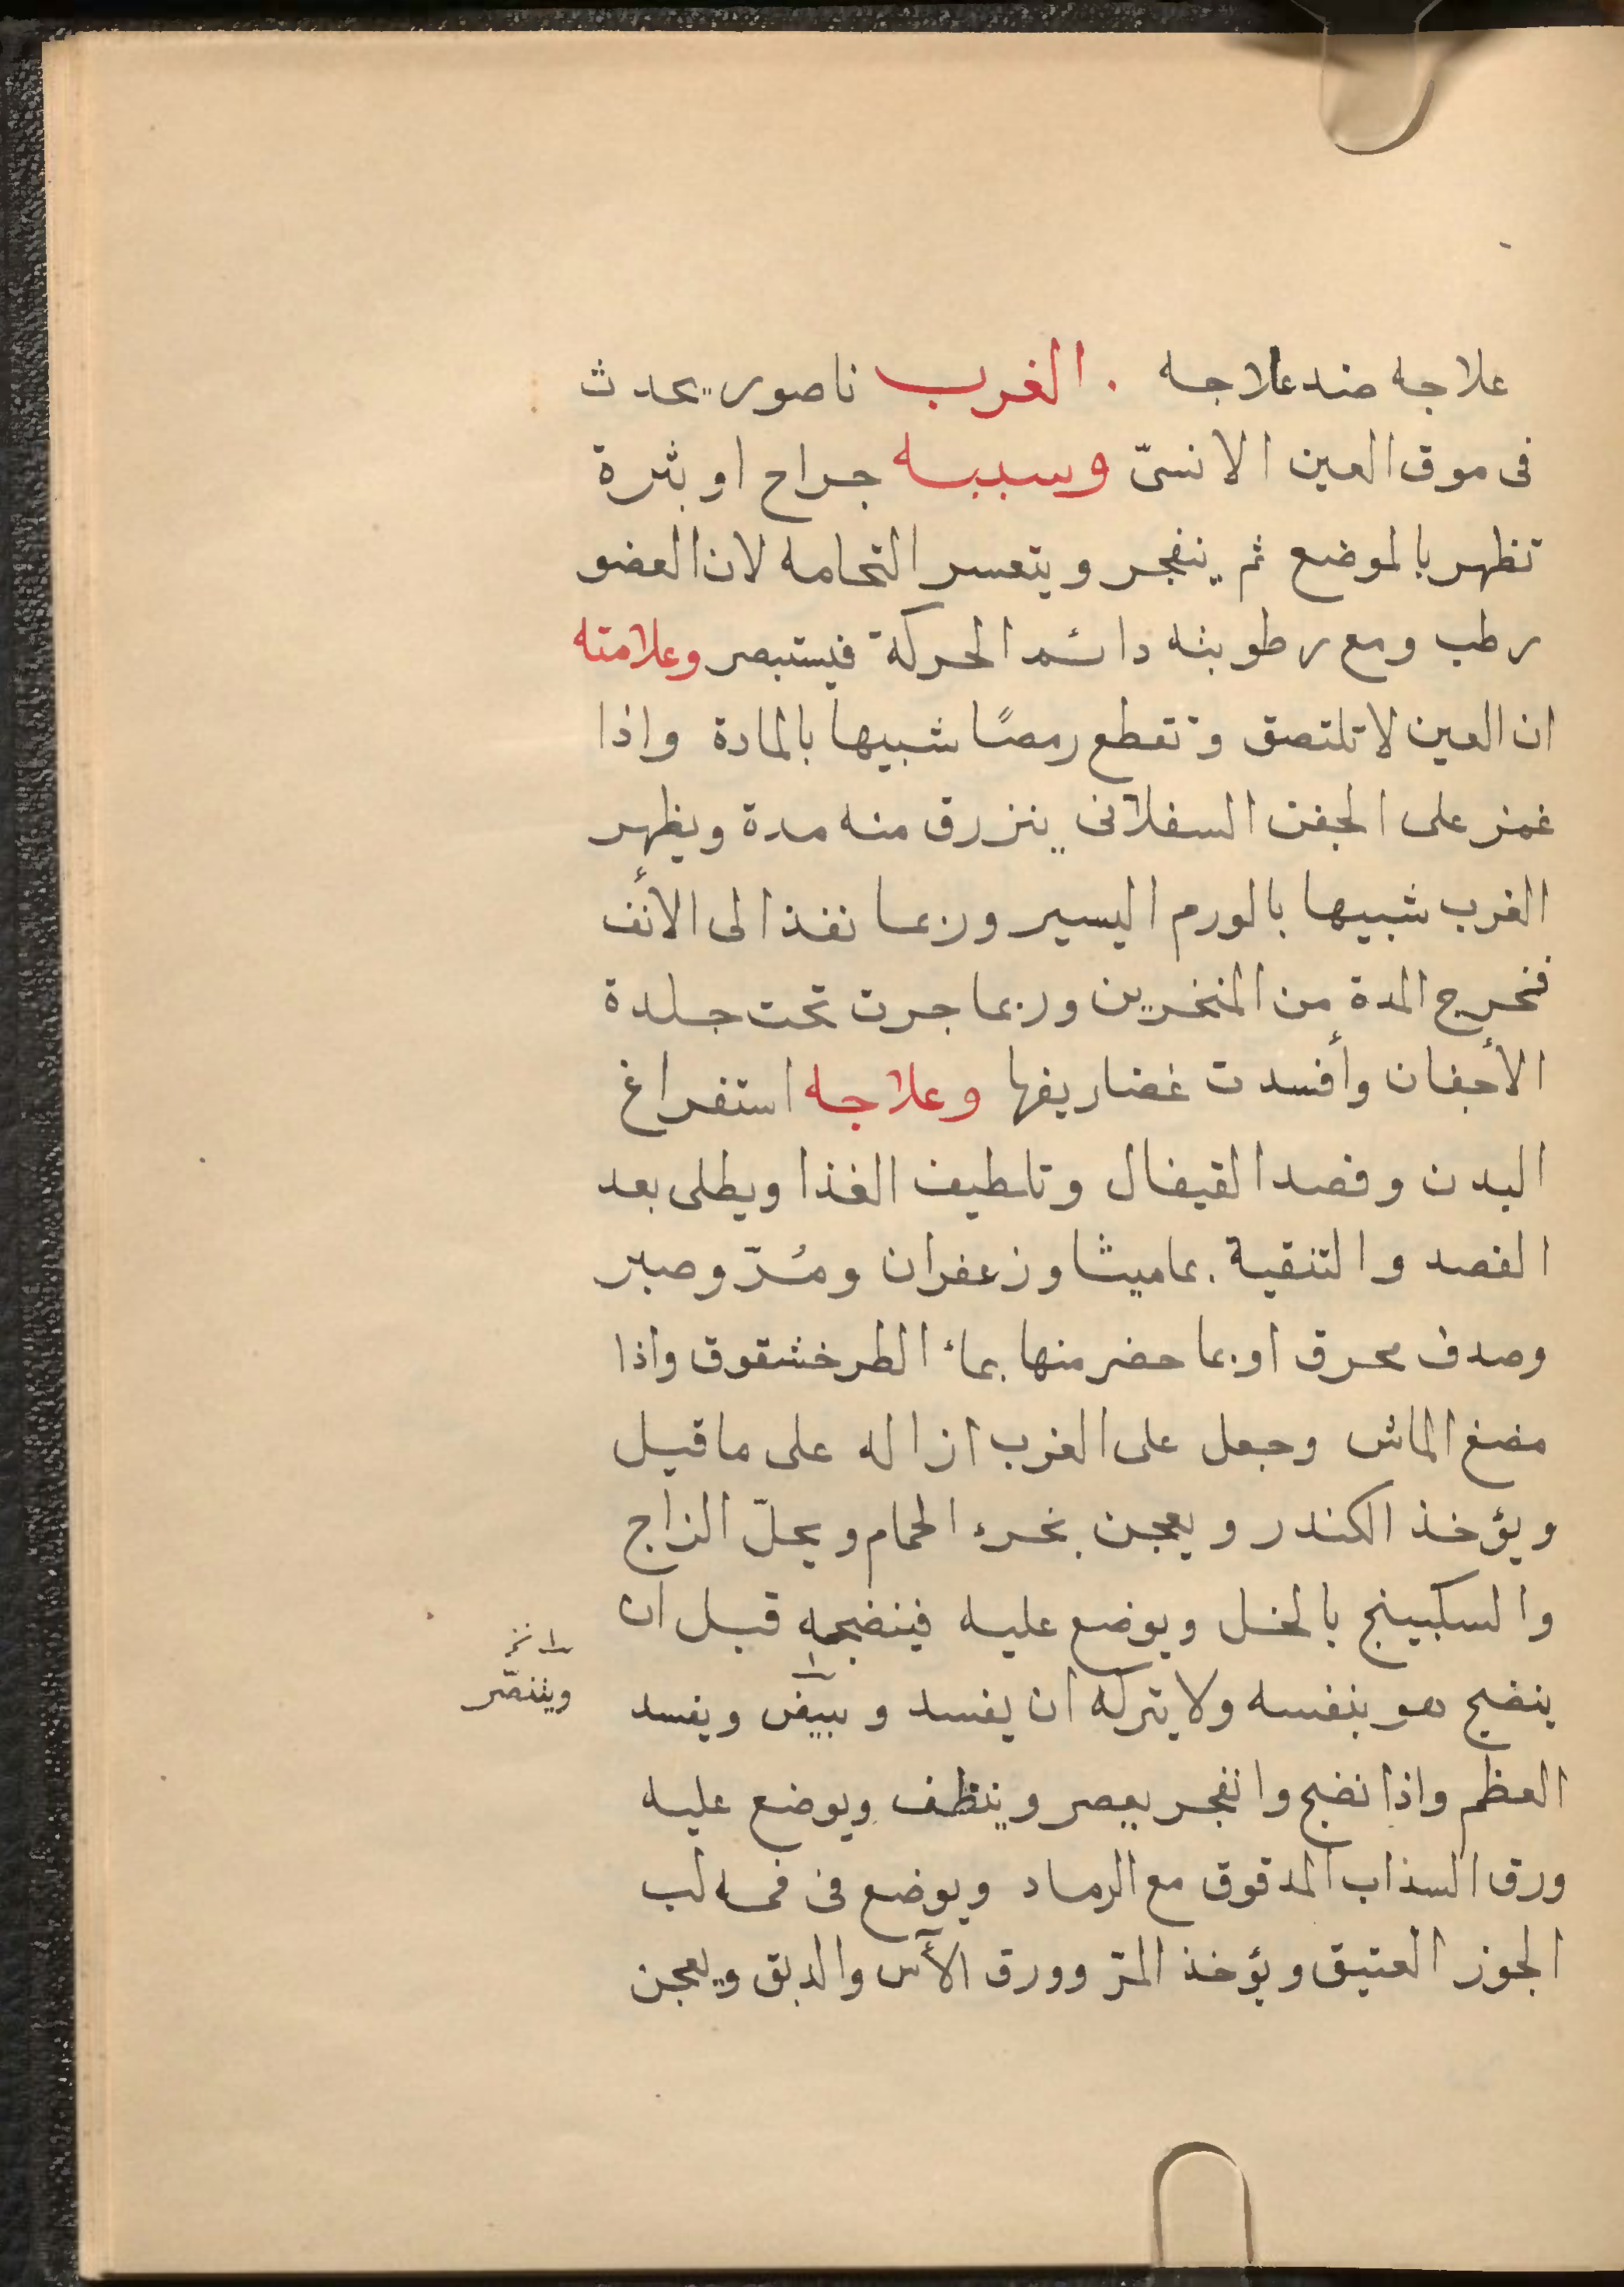 علاجه ضد علاجه . الغرب ناصور يحدث
فى موق العين الانسىّ وسببه جراح او بثرة
تظهر بالموضع ثم ينفجر ويتعسر التحامه لان العضو
رطب ومع رطوبته دائم الحركة فيستبصر وعلامته
ان العين لا تلتصق وتقطع رمصًا شبيها بالمادة واذا
غمز على الجفن السفلانى ينزرق منه مدة ويظهر
الغرب شبيها بالورم اليسير وربما نفذ الى الأنف
فتخرج المدة من المنخرين وربما جرت تحت جلدة
الأجفان وأفسدت غضاريفها وعلاجه استفراغ
البدن وفصد القيفال وتلطيف الغذا ويطلى بعد
الفصد والتنقية بماميثا وزعفران ومُرّ وصبر
وصدف محرق او بما حضر منها بماء الطرخشقوق واذا
مضغ الماش وجعل على الغرب ازاله على ما قيل
ويؤخذ الكندر ويعجن بخرء الحمام ويحلّ الزاج
والسكبينج بالخل ويوضع عليه فينضجه قبل ان
ينضج هو بنفسه ولا يتركه ان يفسد ويبيض ويفسد
ويتنصّر
العظم واذا نضج وانفجر يعصر وينظف ويوضع عليه
ورق السذاب المدقوق مع الرماد ويوضع فى فمه لب
الجوز العتيق ويؤخذ المرّ وورق الآس والدبق ويعجن